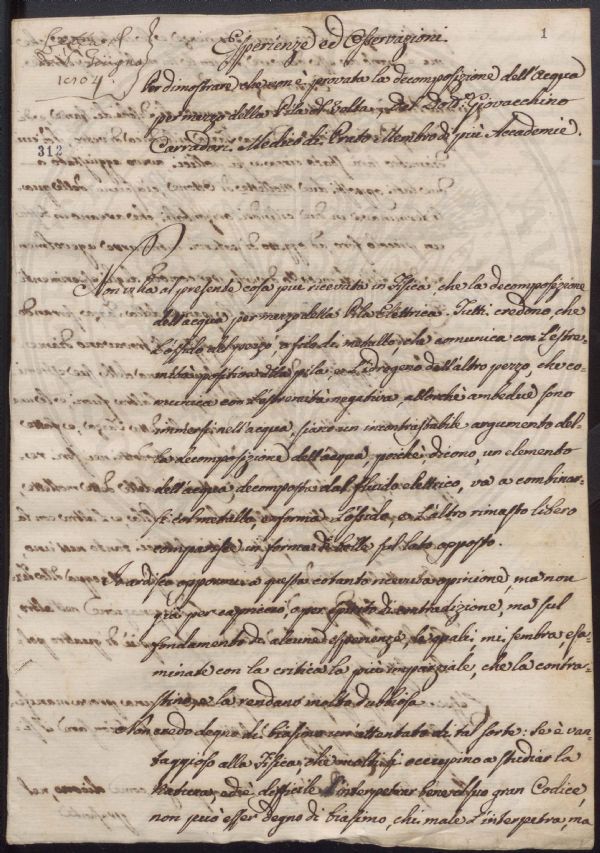 1
Esperienze ed Osservazioni
1804.
Per dimostrare che non è provata la decomposizione dell'Acqua
per mezzo della Pila di Volta. Del Dott. Giovacchino
Carradori Medico di Prato Membro di più Accademie.
312
Non v'ha al presente cosa più ricevuta in Fisica che la decomposizione
dell'acqua per mezzo della Pila Elettrica. Tutti credono, che
l'ossido del pezzo, o filo di metallo, che comunica con l'estre-
mità positiva della pila, e l'idrogeno dell'altro pezzo, che co-
munica con l'estremità negativa, allorchè ambedue sono
immersi nell'acqua, siano un incontrastabile argomento del-
la decomposizione dell'acqua; poichè dicono, un elemento
dell'acqua decomposta dal fluido elettrico, va a combinar-
si col metallo, e forma l'ossido, e l'altro rimasto libero
comparisce in forma di bolle sul lato opposto.
Ardisco oppormi a questa cotanto ricevuta opinione, ma non
già per capriccio, o per spirito di contradizione, ma sul
fondamento di alcune esperienze, le quali, mi sembra, esa-
minate con la critica la più imparziale, che la contra-
stino, e la rendano molto dubbiosa.
Non credo degno di biasimo un attentato di tal sorte: Se è van-
taggioso alla Fisica che molti si occupino a studiar la
Natura, ed è difficile l'interpetrar bene il suo gran Codice,
non può esser degno di biasimo, chi male l'interpetra, ma